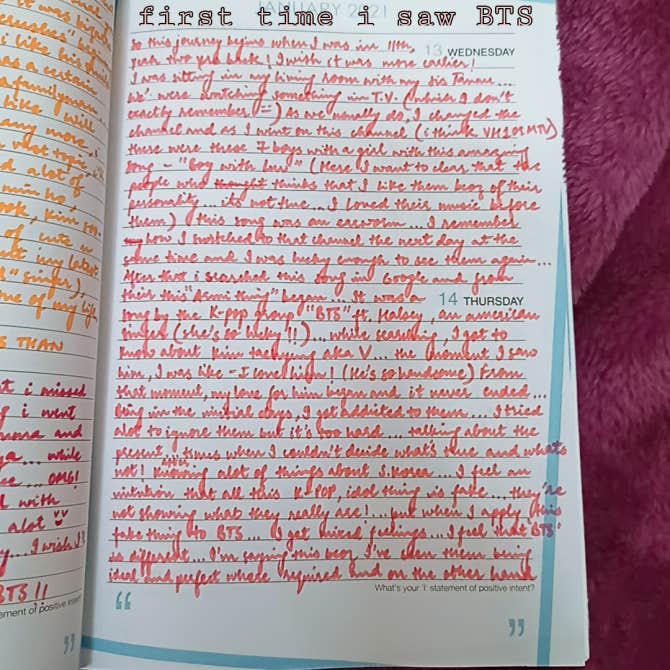 first time i saw BTS
JANUARY 2021
13 WEDNESDAY
So this journey begins when I was in 11th,
year two yrs back! I wish it was more earlier!
I was sitting in my living room with my sis
We were watching something in T.V. (which I don't
exactly remember) As we usually do, I changed the
channel and as I went on this channel (i think VH1 or MTV)
there were these 7 boys with a girl with this amazing
song - "Boy with luv" (Here I want to clear that the
people who thought thinks that I like them bcoz of their
personality... its not true... I loved their music before
them) this song was an earworm... I remember
how I switched to that channel the next day at the
same time and I was lucky enough to see them again...
After that i searched this song in Google and from
their this "Asmi thing" began... It was a
14 THURSDAY
song by the K-pop group "BTS" ft. Halsey, an american
singer (she's so lucky!!)... while searching, I got to
know about Kim taehyung aka V... the moment I saw
him, I was like - I love him! (He's so handsome) From
that moment, my love for him began and it never ended...
in the initial days, I got addicted to them... I tried
alot to ignore them but it's too hard... talking about the
present, times when I couldn't decide what's true and whats
not! After knowing alot of things about S.Korea... I feel an
intuition that all this K-POP, idol thing is fake... they're
not showing what they really are!... but when I apply this
fake thing to BTS... I get mixed feelings... I feel that 'BTS'
is different... I'm saying this bcoz I've seen them being
ideal and perfect where required and on the other hand
What's your 'I' statement of positive intent?
ement of positive intent
like his
as a certain
a family man
like I will
any more
what topic
d alot of
min ho
ook, Kim
of cute
my latest
singer),
one of my life
S THAN
t i missed
I went
and
while
OMG!
with
alot
I wish I
BTS !!